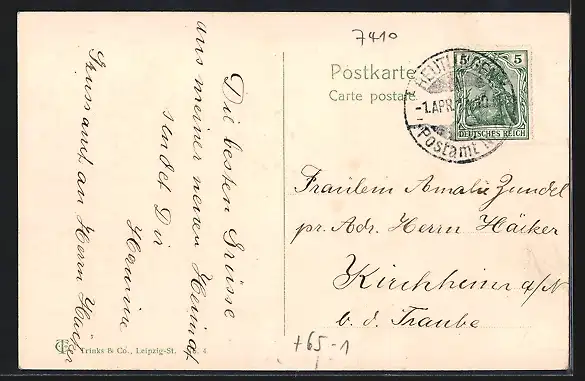 7410
Postkarte
Carte postale
REUTLINGEN
-1.APR.
Postamt
5
DEUTSCHES REICH
Die besten Grüsse
aus meiner neuen Heimat
sendet Dir
Hannine
Gruss auch an Herrn Häcker
Fräulein Amalie Zundel
pr. Adr. Herrn Häcker
Kirchheim a/N
b. d. Traube
Trinks & Co., Leipzig-St.
+65-1